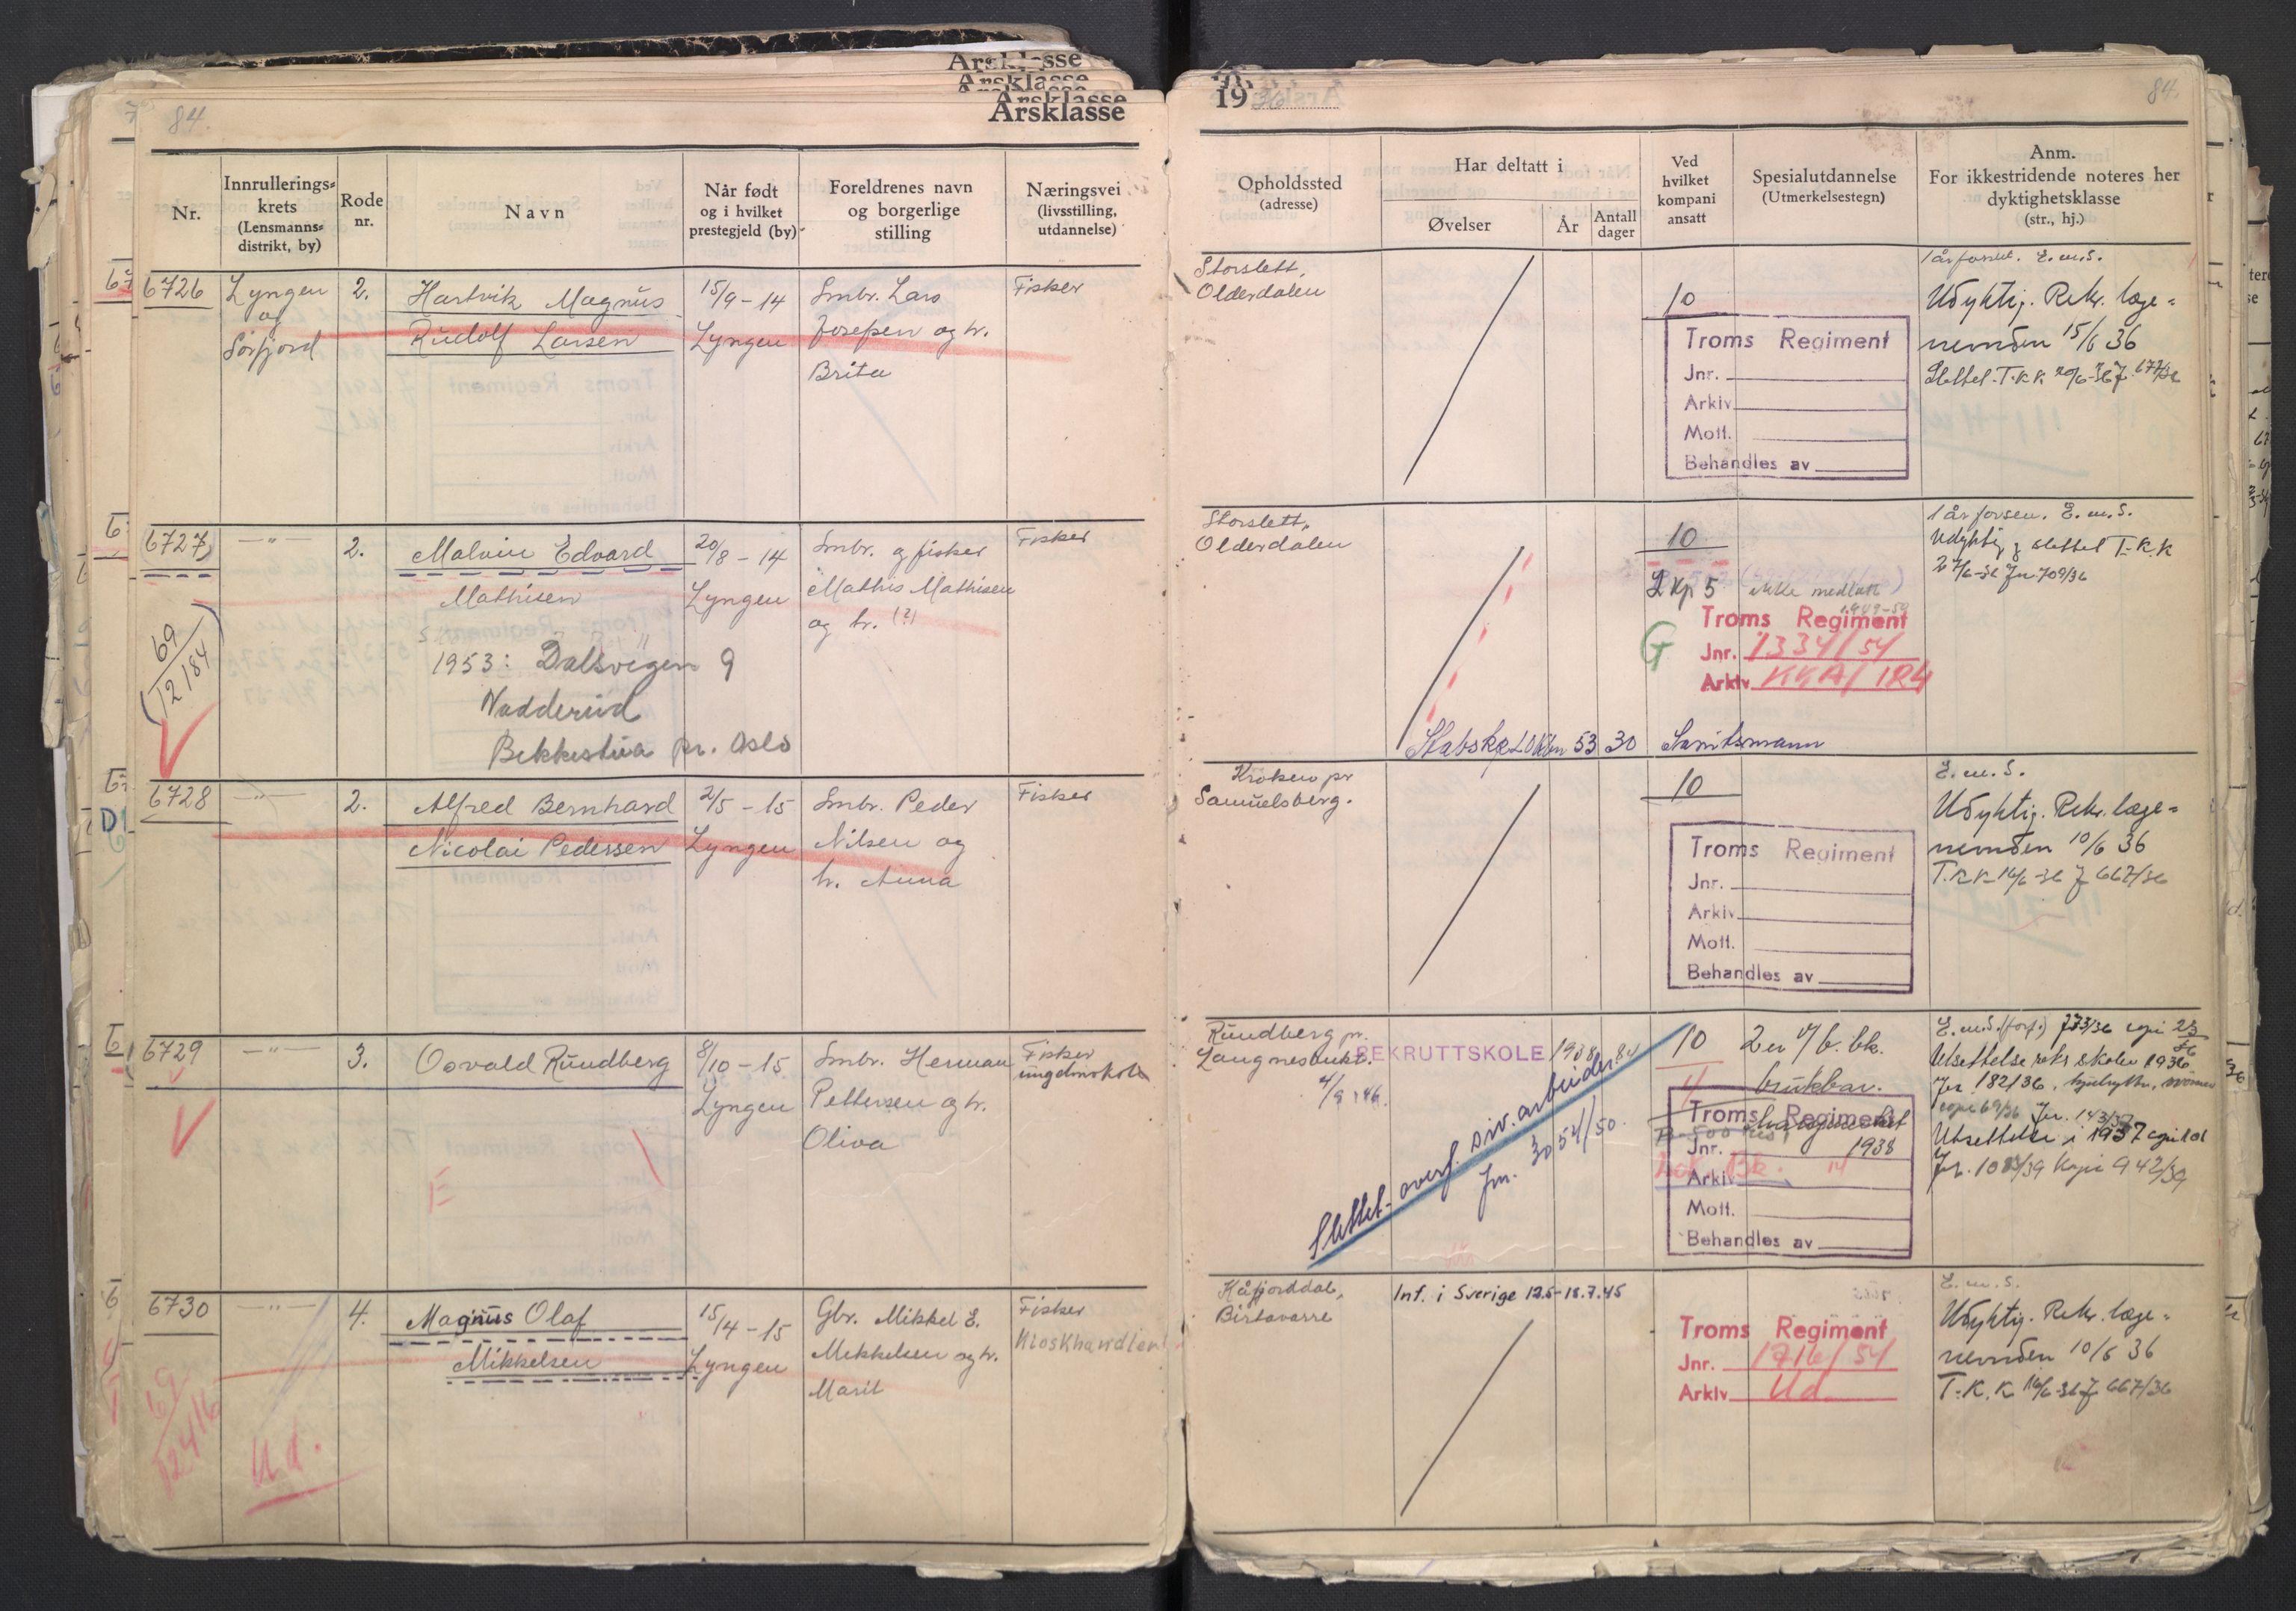 Årsklasse
Årsklasse
Årsklasse
Årsklasse
84.
Nr.
Innrullerings=
krets
(Lensmanns=
distrikt, by)
Rode
nr.
Navn
Når født
og i hvilket
prestegjeld (by)
Foreldrenes navn
og borgerlige
stilling
Næringsvei
(livsstilling,
utdannelse)
6726
Lyngen
og
Sørfjord
2.
Hartvik Magnus
Rudolf Larsen
15/9-14
Lyngen
Smbr. Lars
Josefsen og h.
Brita
Fisker
6727
-"-
2.
Malvin Edvard
Mathisen
20/8-14
Lyngen
Smbr. og fisker
Mathis Mathisen
og h. (?)
Fisker
69
12184
1953: Dalsvegen 9
Nadderud
Bekkestua pr. Oslo
6728
-"-
2.
Alfred Bernhard
Nicolai Pedersen
2/5-15
Lyngen
Smbr. Peder
Nilsen og
h. Anna
Fisker
6729
-"-
3.
Osvald Rundberg
8/10-15
Lyngen
Smbr. Herman
Pettersen og h.
Oliva
Fisker
ungdomskole
E
6730
-"-
4.
Magnus Olaf
Mikkelsen
15/4-15
Lyngen
Gbr. Mikkel E.
Mikkelsen og h.
Marit
Fisker
Kioskhandler
69
12416
Ud.
1936
84.
Opholdssted
(adresse)
Har deltatt i
Øvelser
År
Antall
dager
Ved
hvilket
kompani
ansatt
Spesialutdannelse
(Utmerkelsestegn)
Anm.
For ikkestridende noteres her
dyktighetsklasse
(str., hj.)
Storslett,
Olderdalen
10
Troms Regiment
Jnr.
Arkiv
Mott.
Behandles av
1 år forsøm. E.m.S.
Udyktig. Rekr. læge=
nemnden 15/6 36
Slettet. T.K.K. 20/6-36 J. 677/36
Storslett,
Olderdalen
10
L Kp 5
ikke medtatt
1949-50
G
Troms Regiment
Jnr. 1334/54
Arkiv KKA/IR4
Stabskp
53
30
Sanitsmann
1 år forsøm. E.m.S.
Udyktig slettet T.K.K
27/6-36 Jn 709/36
Kroken pr
Samuelsberg.
10
Troms Regiment
Jnr.
Arkiv
Mott.
Behandles av
E.m.S.
Udyktig. Rekr. læge=
nemnden 10/6 36
T.K.K. 16/6-36 J 667/36
Rundberg pr.
Langnesbukt.
4/9 146.
REKRUTTSKOLE 1938 84
Slettet- overf. siv. arbeider.
Jnr. 3054/50.
10
11
2 er
brukbar.
1938
Troms Regiment
Jnr.
Arkiv
Mott.
Behandles av
E.m.S. (forf.) 773/36 copi 23/36
Utsettelse rekr skolen 1936
Jnr 182/36.
copi 69/36 Jnr. 143/37
Utsettelse i 1937 copi 101
Jnr. 1083/39 Kopi 942/39
Kåfjorddal,
Birtavarre
Int. i Sverige 12.5-18.7.45
Troms Regiment
Jnr. 1716/54
Arkiv Ud.
E.m.S.
Udyktig. Rekr. læge=
nemnden 10/6 36
T.K.K 16/6-36 J 667/36